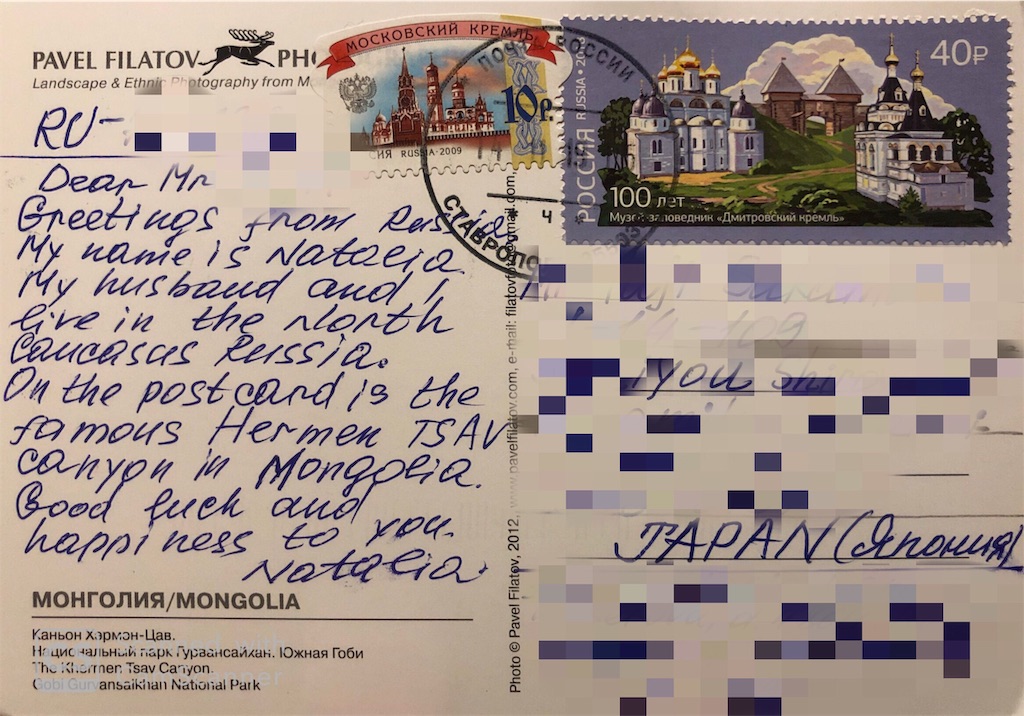 PAVEL FILATOV PHO
Landscape & Ethnic Photography from M
RU-
Dear Mr
Greetings from Russia.
My name is Natalia.
My husband and I
live in the North
Caucasus Russia.
On the postcard is the
famous Hermen TSAV
canyon in Mongolia.
Good luck and
happiness to you.
Natalia.
МОНГОЛИЯ/MONGOLIA
Каньон Хэрмэн-Цав.
Национальный парк Гурвансайхан. Южная Гоби
The Khermen Tsav Canyon.
Gobi Gurvansaikhan National Park
Photo © Pavel Filatov, 2012. www.pavelfilatov.com, e-mail: filatovfoto@gmail.com
МОСКОВСКИЙ КРЕМЛЬ
10р.
СИЯ RUSSIA-2009
ПОЧТА РОССИИ
СТАВРОПО
РОССИЯ RUSSIA
40₽
100 лет
Музей-заповедник «Дмитровский кремль»
JAPAN (Япония)